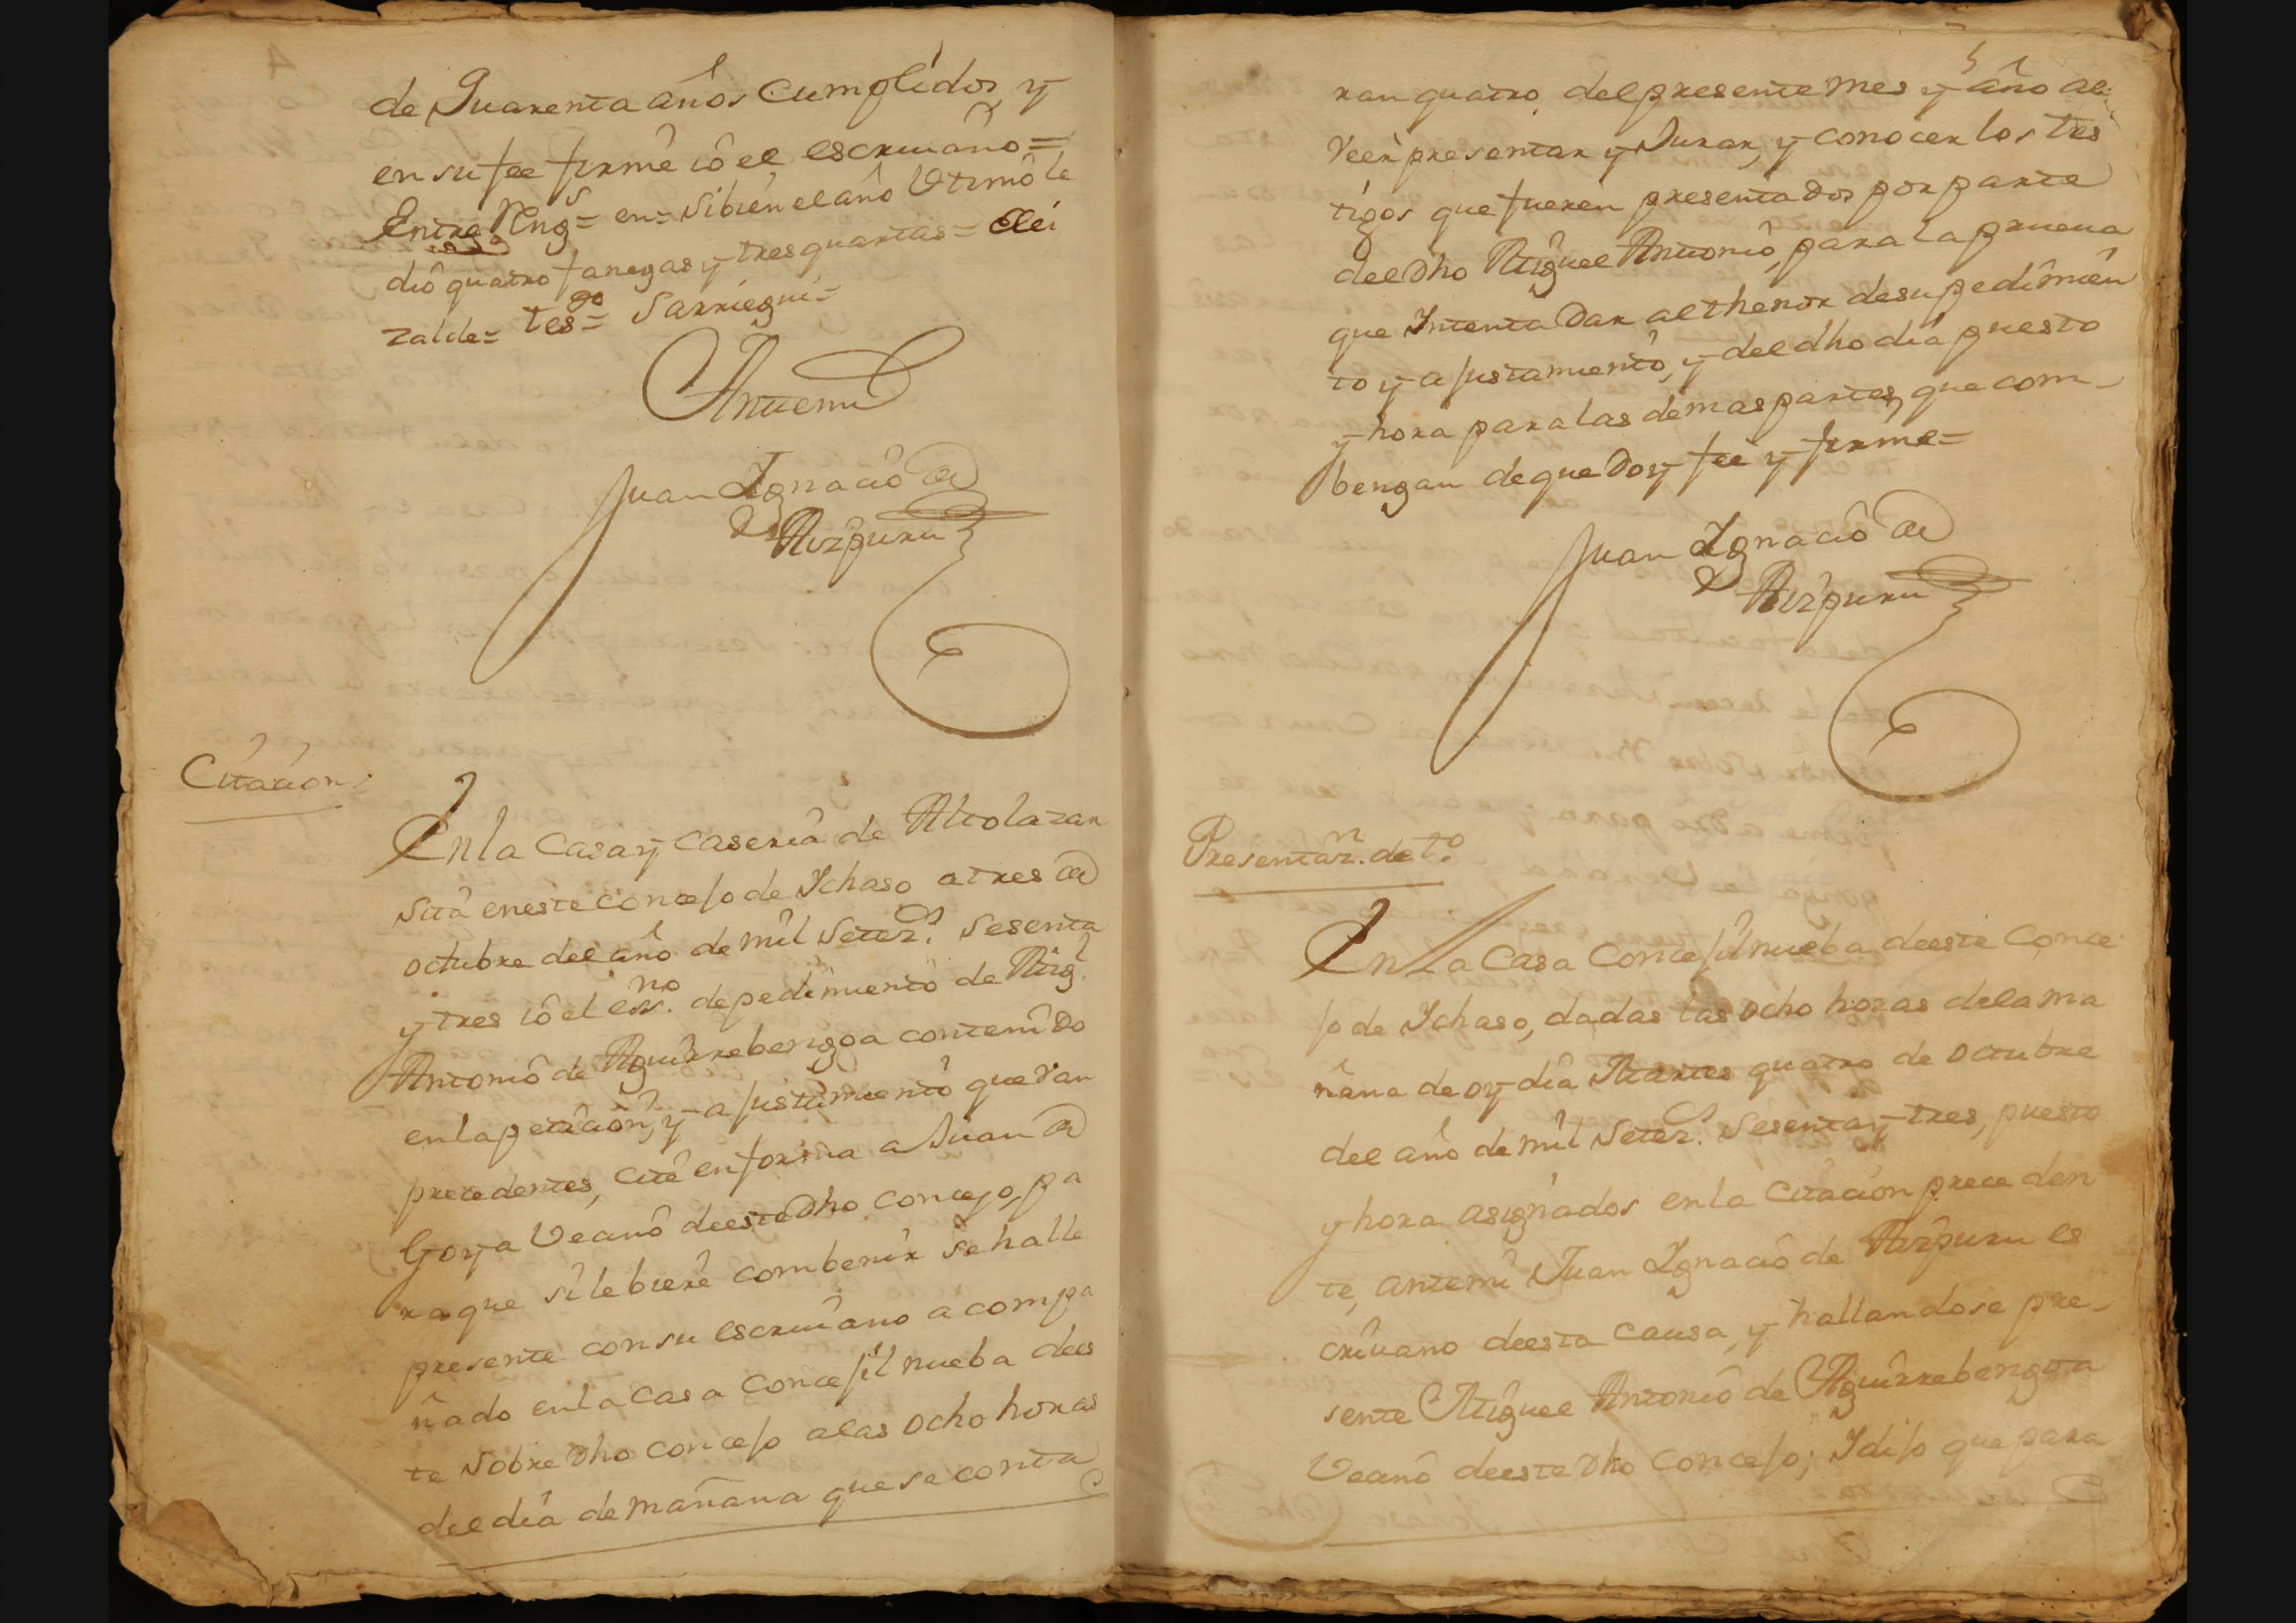 de Quarenta años Cumplidos y
en su fee firmè iô el escriuano=
Entre Rengs= en= sibien el año Ultimo le
diô quatro fanegas y tres quartas= Elei
zalde= tesgo= Sarriegui=
Antemi
Juan Ignaciô de
Aizpuru
Citacion
En la Casa y Caseriâ de Altolazar
sitâ en este concejo de Ichaso a tres de
octubre del año de mîl setezs. sesenta
y tres iô el essno. de pedimiento de Migl.
Antoniô de Aguirrebengoa contenîdo
en la peticiôn, y ajustamientô que dan
precedentes, citê en forma a Juan de
Goya Vecinô de este dho concejo, pa
ra que si le biere combenir se halle
presente con su escriuano acompa
ñado en la casa concejil nueba de es
te sobre dho concejo a las ocho horas
del dîa de mañana que se conta
5
ran quatro del presente mes y año al
veer presentar y Jurar, y conocer los tes
tigos que fueren presentados por parte
del dho Miguel Antoniô, para la prueua
que Intenta dar al thenor de su pedimien
to y ajustamientô, y del dho dia puesto
y hora para las demas partes, que com-
bengan de que doy fee y firme=
Juan Ignaciô de
Aizpuru
Presentazn. de to.
En La Casa Concejil nueba de este Conce
jo de Ichaso, dadas las ocho horas de la ma
ñana de oy dîa Martes quatro de octubre
del año de mîl setezs. sesenta y tres, puesto
y hora asignados en la Citaciôn preceden
te, antemi Juan Ignaciô de Aizpuru es
criuano de esta causa, y hallandose pre-
sente Miguel Antoniô de Aguirrebengoa
Vecinô de este dho Concejo; I dijo que para